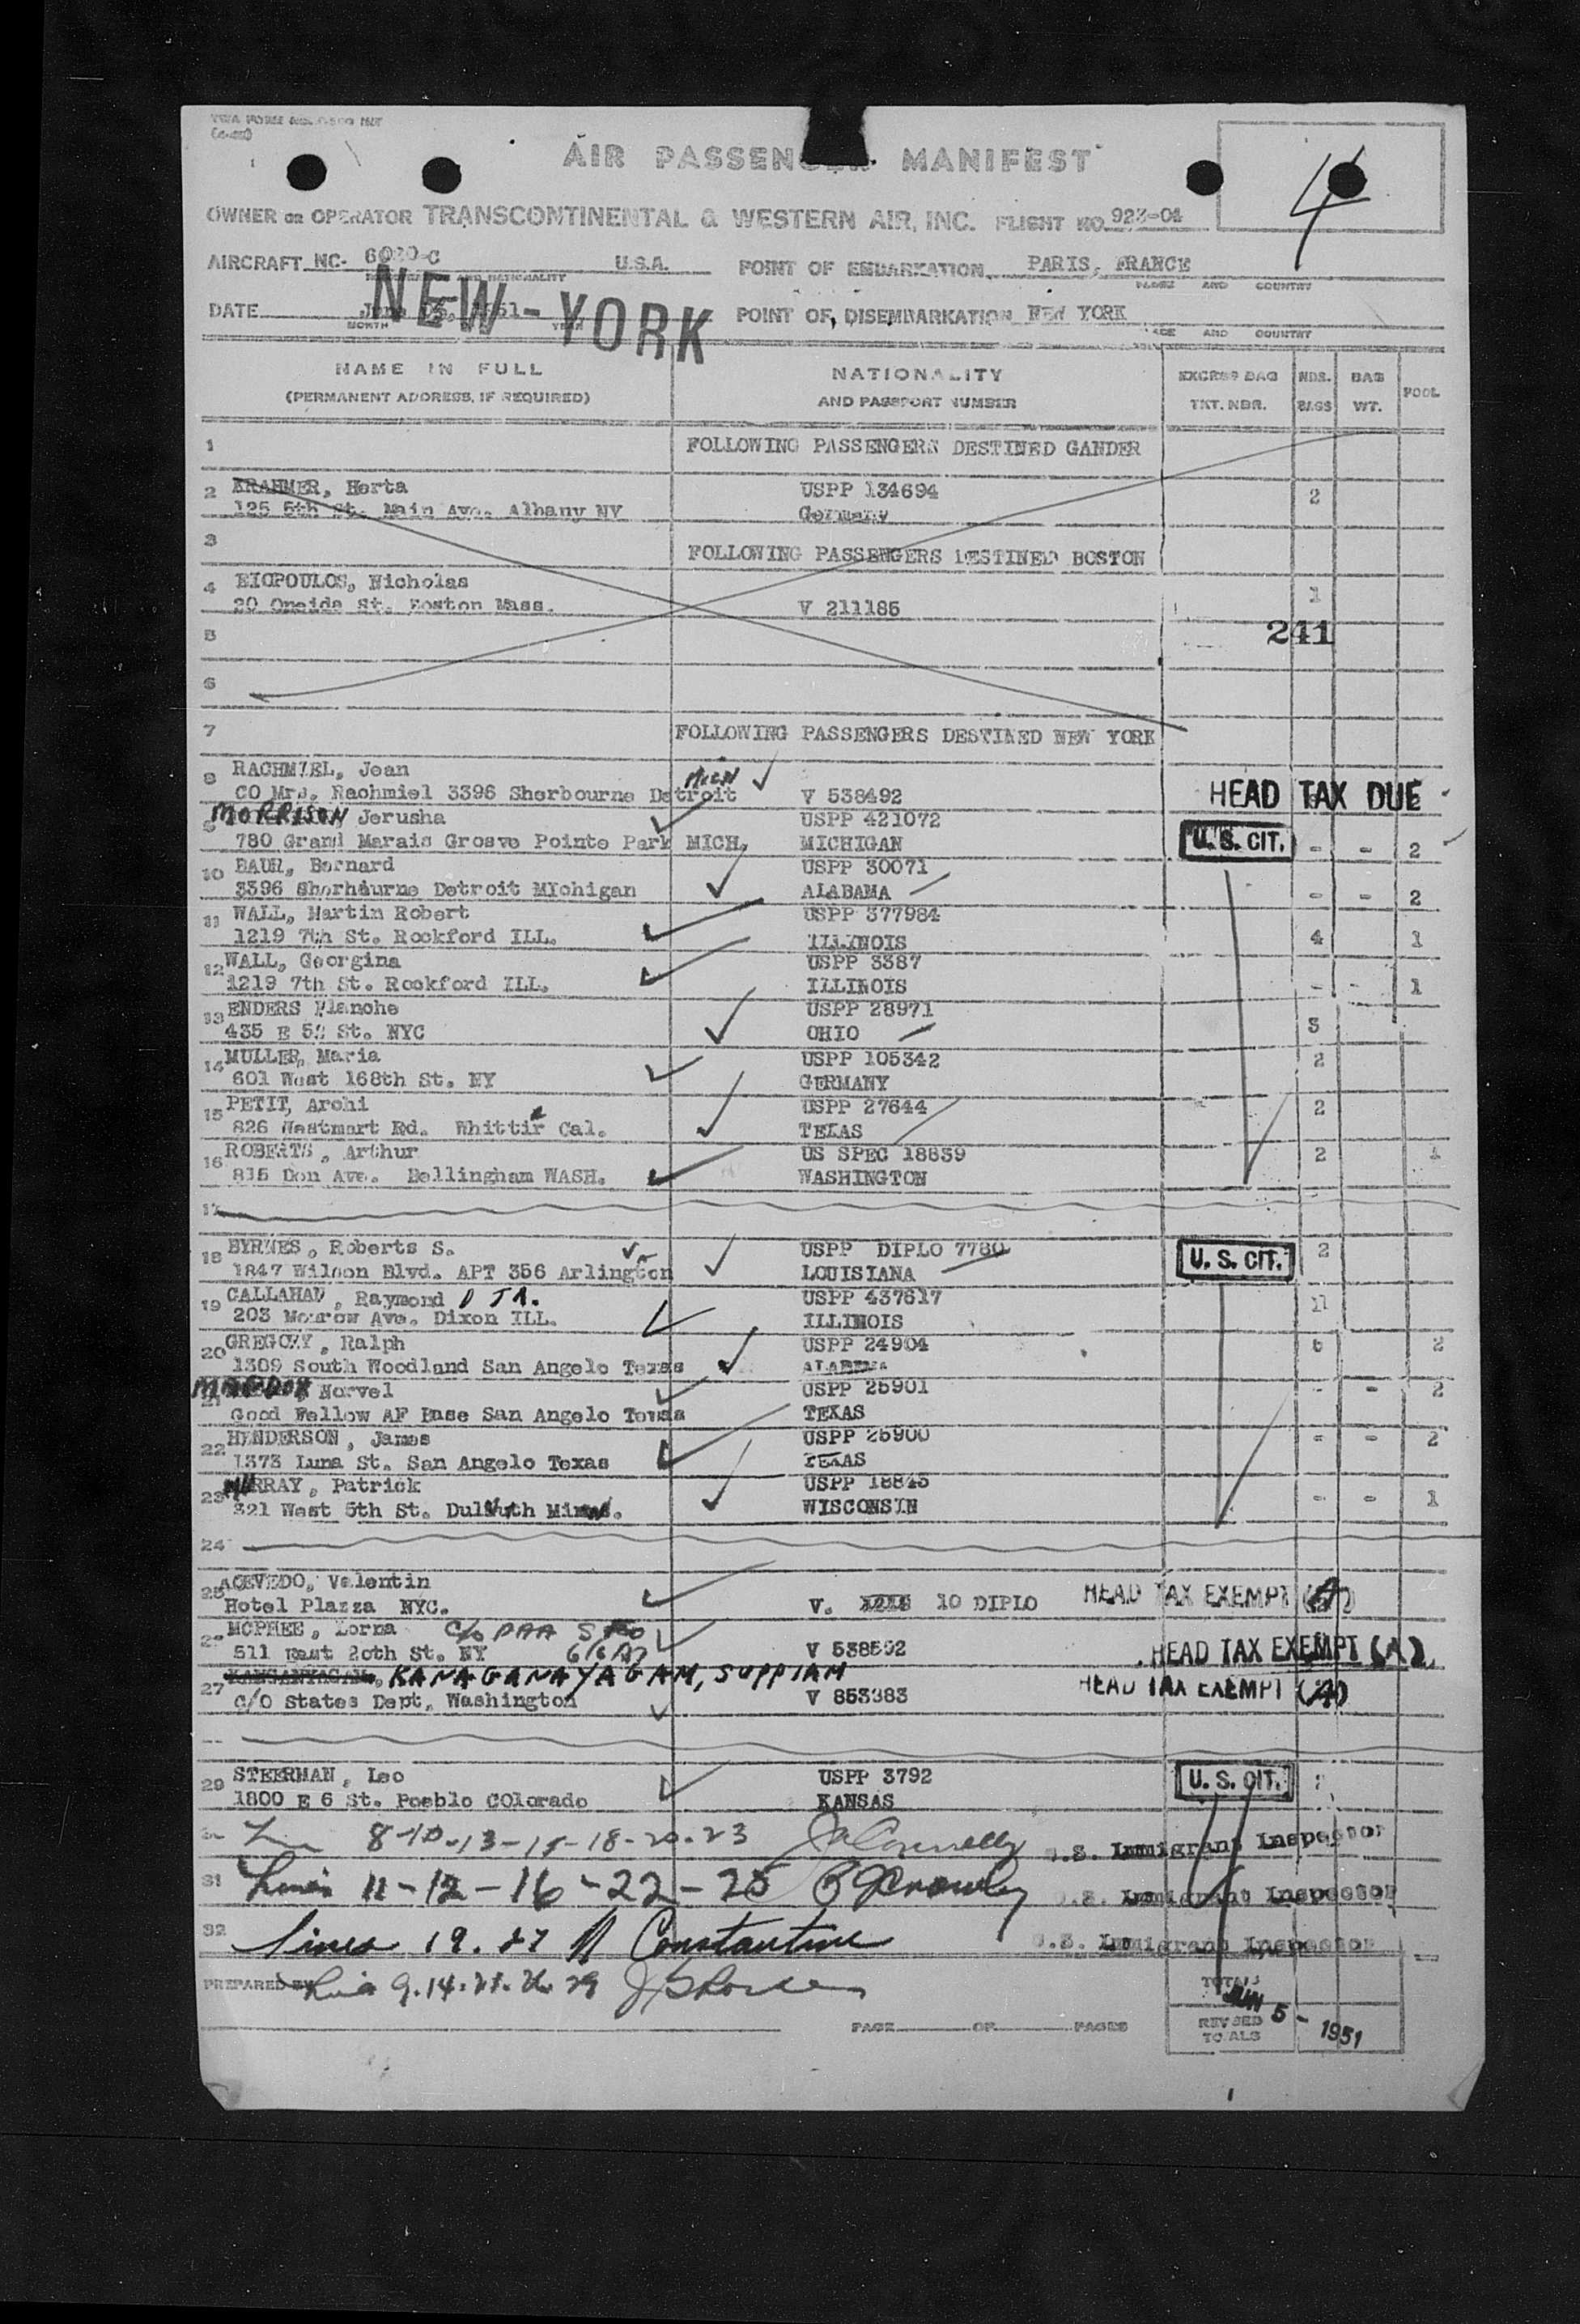 AIR PASSENGER MANIFEST
4
OWNER OR OPERATOR TRANSCONTINENTAL & WESTERN AIR, INC. FLIGHT NO. 923-04
AIRCRAFT NC- U.S.A. POINT OF EMBARKATION PARIS, FRANCE
PLACE AND COUNTRY
NEW-YORK
DATE POINT OF DISEMBARKATION NEW YORK
MONTH YEAR AND COUNTRY
NAME IN FULL
(PERMANENT ADDRESS, IF REQUIRED)
NATIONALITY
AND PASSPORT NUMBER
EXCESS BAG
TKT. NBR.
NBS.
BAGS
BAG
WT.
POOL
1 FOLLOWING PASSENGERS DESTINED GANDER
2 KRAHMER, Herta USPP 134694 2
125 5th St. Main Ave. Albany NY Germany
3 FOLLOWING PASSENGERS DESTINED BOSTON
4 Nicholas 1
20 Oneida St. Boston Mass. V 211185
5 241
6
7 FOLLOWING PASSENGERS DESTINED NEW YORK
8 RACHMIEL, Jean MICH
CO Mrs. Rachmiel 3396 Sherbourne Detroit V 538492 HEAD TAX DUE
9 MORRISON Jerusha USPP 421072
780 Grand Marais Grosve Pointe Park MICH. MICHIGAN U.S. CIT. - - 2
10 BAUM, Bernard USPP 30071
3396 Sherbaurne Detroit MIchigan ALABAMA - - 2
11 WALL, Martin Robert USPP 377984
1219 7th St. Rockford ILL. ILLINOIS 4 1
12 WALL, Georgina USPP 3387
1219 7th St. Rockford ILL. ILLINOIS - 1
13 ENDERS Blanche USPP 28971
435 E 52 St. NYC OHIO 3
14 MULLER, Maria USPP 105342 2
601 West 168th St. NY GERMANY
15 PETIT, Archi USPP 27644 2
826 Westmort Rd. Whittir Cal. TEXAS
16 ROBERTS, Arthur US SPEC 18839 2 1
815 Don Ave. Bellingham WASH. WASHINGTON
17
18 BYRNES, Roberts S. USPP DIPLO 7780 U. S. CIT. 2
1847 Wilson Blvd. APT 356 Arlington Va LOUISIANA
19 CALLAHAN, Raymond D JR. USPP 437617 11
203 Morrow Ave. Dixon ILL. ILLINOIS
20 GREGORY, Ralph USPP 24904 6 2
1309 South Woodland San Angelo Texas ALABEMA
21 MADDOX Norvel USPP 25901 - - 2
Good Fellow AF Base San Angelo Texas TEXAS
22 HENDERSON, James USPP 25900 - - 2
1373 Luna St. San Angelo Texas TEXAS
23 MURRAY, Patrick USPP 18845
321 West 5th St. Duluth Minn. WISCONSIN - - 1
24
25 ACEVEDO, Valentin
Hotel Plazza NYC. V. 10 DIPLO HEAD TAX EXEMPT (A)
MCPHEE, Lorna C/o PAA
511 East 20th St. NY V 538502 HEAD TAX EXEMPT (A)
27 KANAGANAYAGAM, SUPPIAH
C/O States Dept, Washington V 853383 HEAD TAX EXEMPT (A)
29 STEERMAN, Leo USPP 3792 U. S. CIT.
1800 E 6 St. Pueblo COlorado KANSAS
8-10-13-15-18-20-23 U.S. Immigrant Inspector
31 Lines 11-12-16-22-25 U.S. Immigrant Inspector
32 Lines 19. 27 Constantine U.S. Immigrant Inspector
PREPARED BY
TOTALS
PAGE OF PAGES
REVISED
TOTALS
JUN 5 - 1951